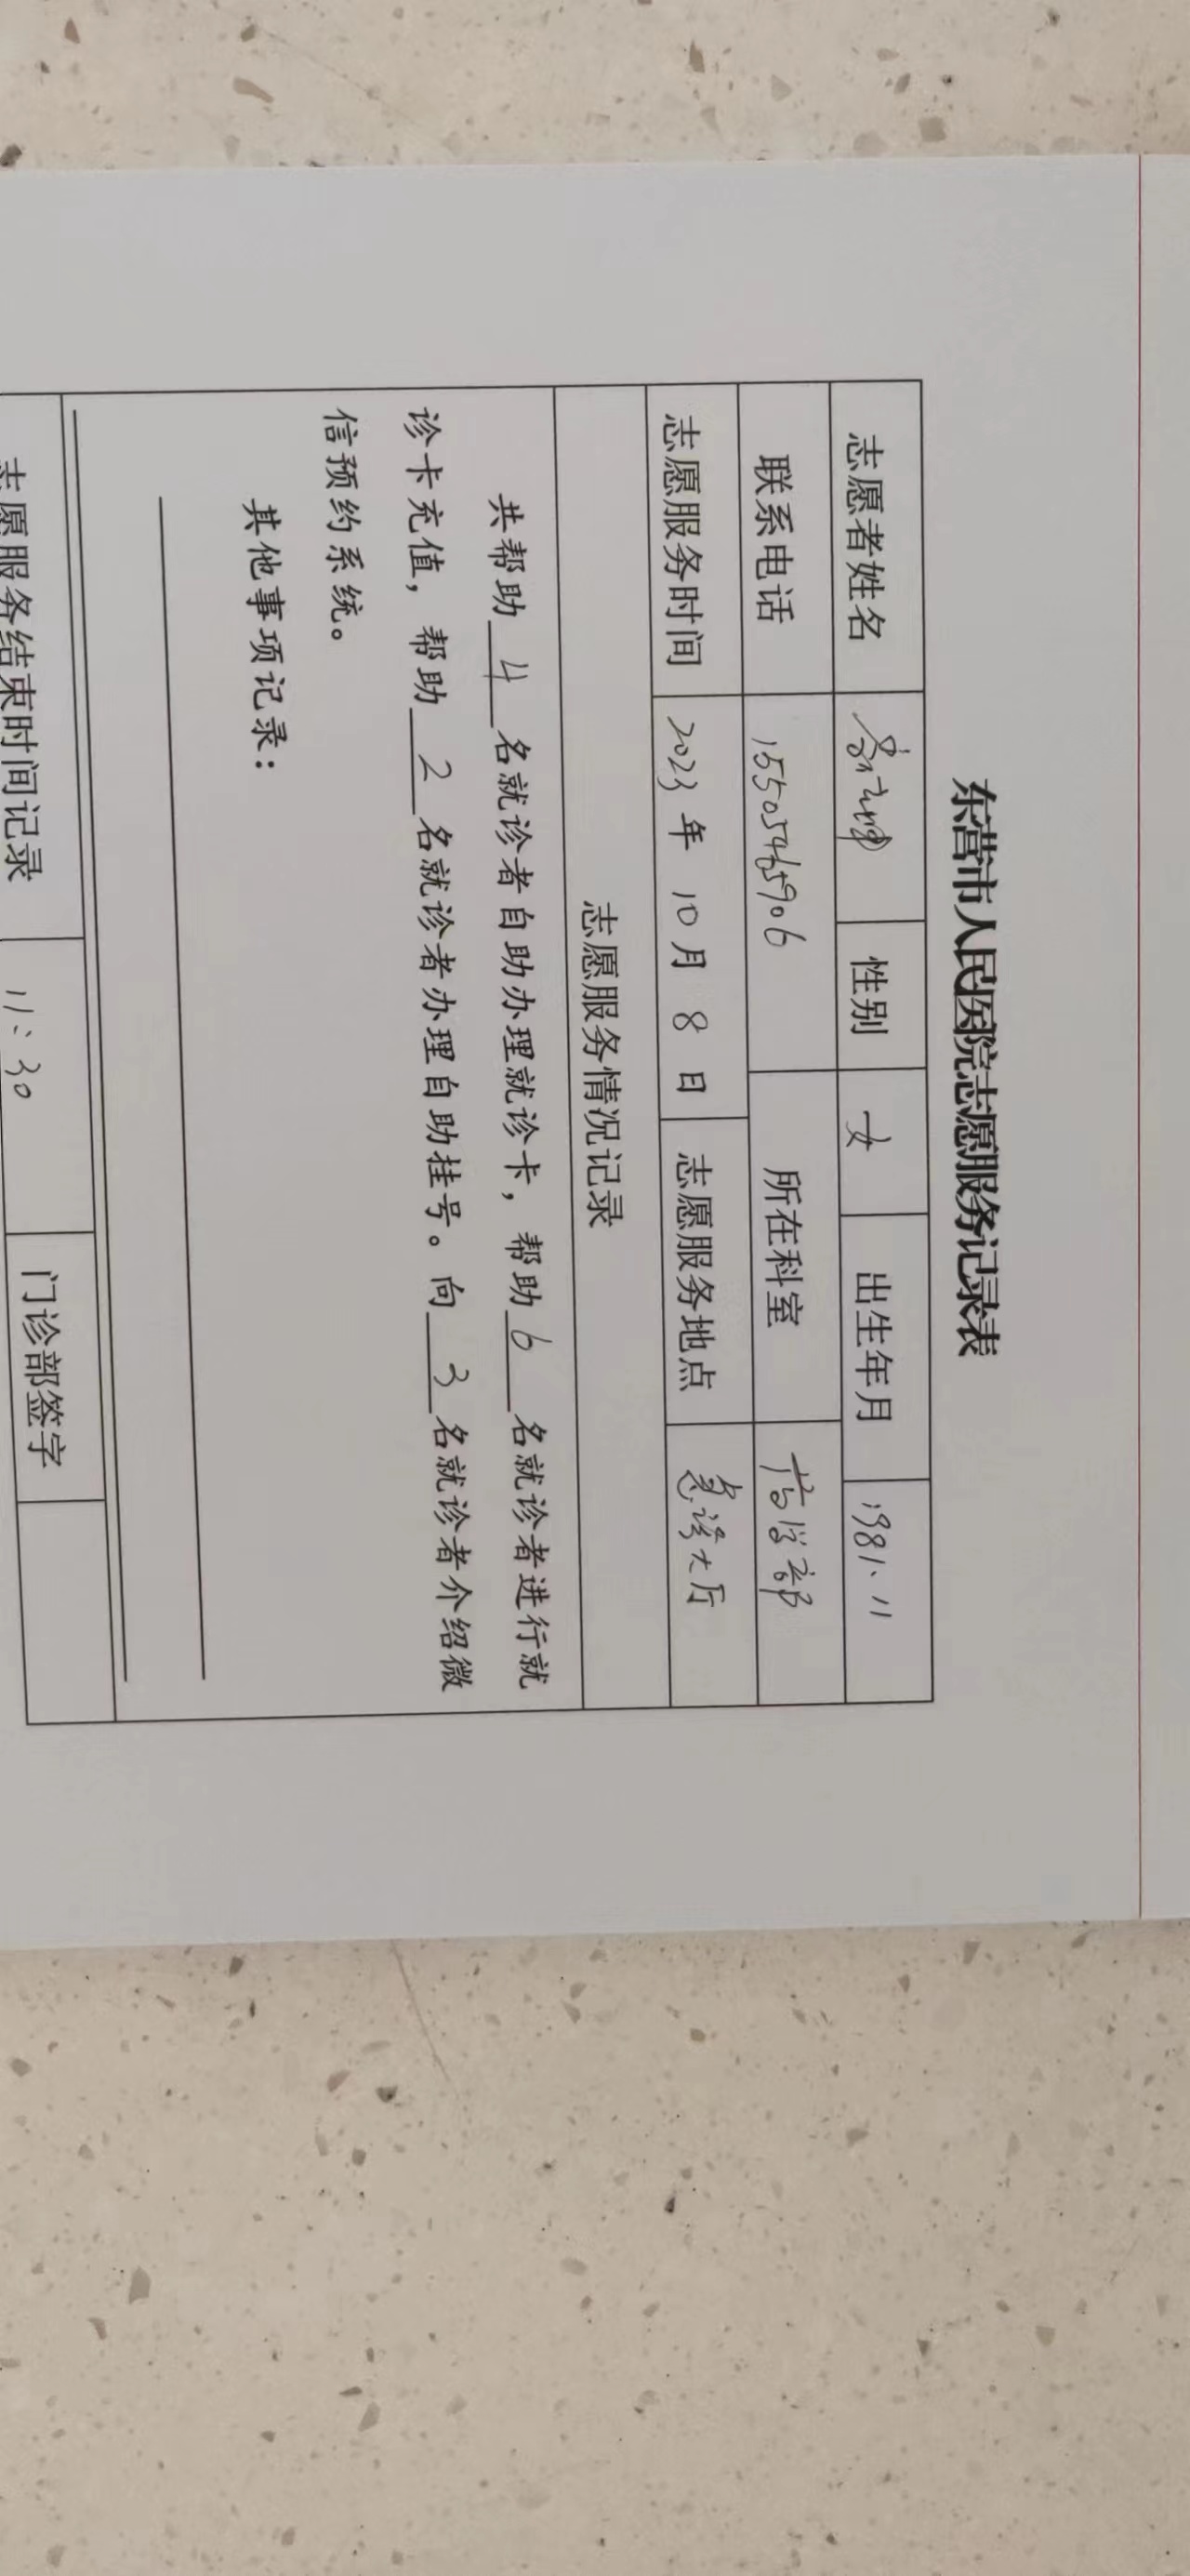 东营市人民医院志愿服务记录表
志愿者姓名 性别 女 出生年月 1981、11
联系电话 15505465906 所在科室 药学部
志愿服务时间 2023 年 10 月 8 日 志愿服务地点 急诊大厅
志愿服务情况记录
共帮助 4 名就诊者自助办理就诊卡，帮助 6 名就诊者进行就
诊卡充值，帮助 2 名就诊者办理自助挂号。向 3 名就诊者介绍微
信预约系统。
其他事项记录：
志愿服务结束时间记录 11:30 门诊部签字